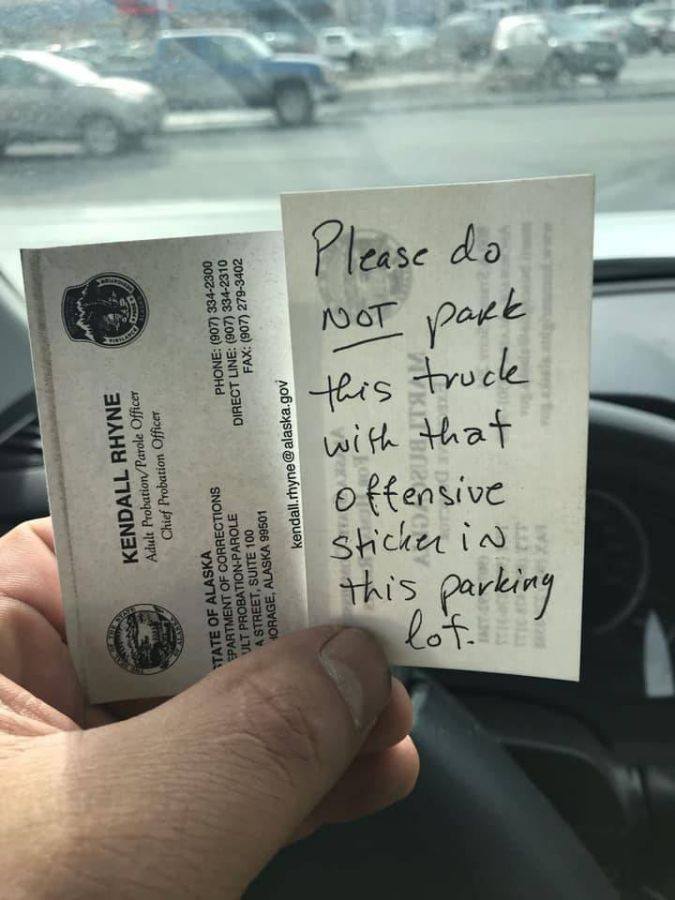 KENDALL RHYNE
Adult Probation/Parole Officer
Chief Probation Officer
STATE OF ALASKA
DEPARTMENT OF CORRECTIONS
ADULT PROBATION-PAROLE
A STREET, SUITE 100
ANCHORAGE, ALASKA 99501
PHONE: (907) 334-2300
DIRECT LINE: (907) 334-2310
FAX: (907) 279-3402
kendall.rhyne@alaska.gov
Please do
NOT park
this truck
with that
offensive
sticker in
this parking
lot.